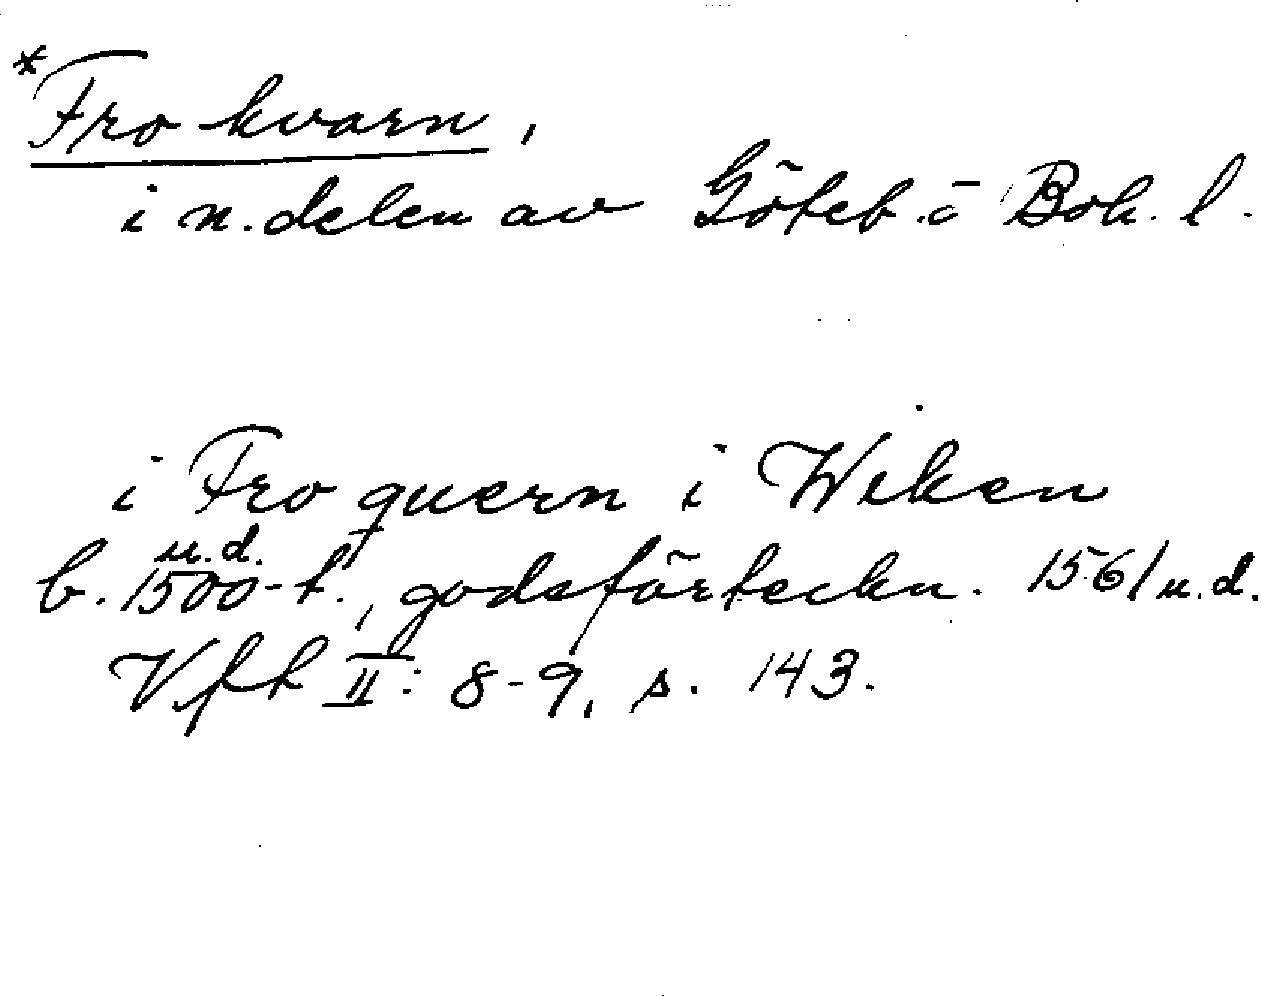 *Fro kvarn,
i n. delen av Göteb. o Boh. l.
i Fro quern i Wiken
b. 1500-t., godsförteckn. 1561 u.d.
u.d.
Vfh II: 8-9, s. 143.